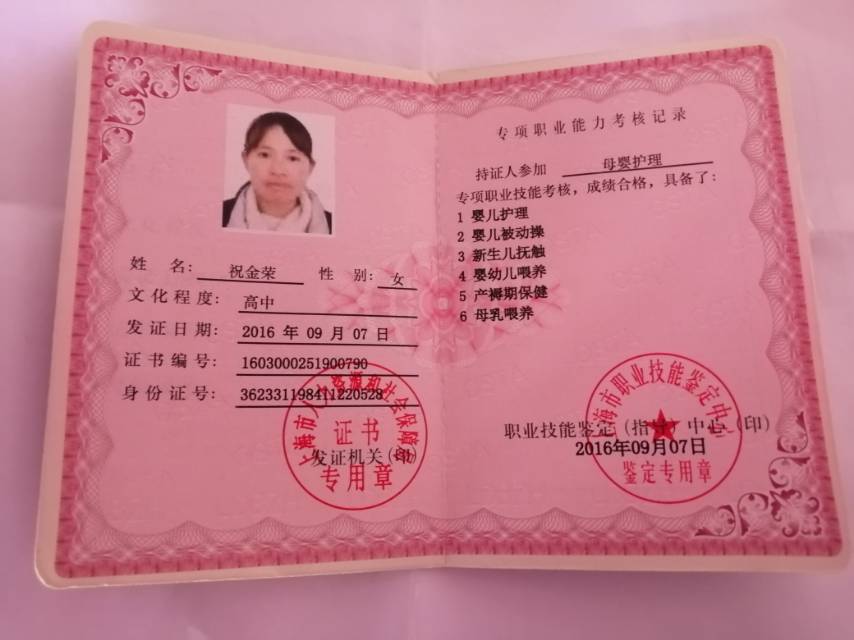 姓 名: 祝金荣 性 别: 女
文化程度: 高中
发证日期: 2016 年 09 月 07 日
证书编号: 1603000251900790
身份证号: 362331198411220528
上海市人力资源和社会保障局
证书
发证机关(印)
专用章
专项职业能力考核记录
持证人参加 母婴护理
专项职业技能考核，成绩合格，具备了:
1 婴儿护理
2 婴儿被动操
3 新生儿抚触
4 婴幼儿喂养
5 产褥期保健
6 母乳喂养
上海市职业技能鉴定中心
职业技能鉴定(指导)中心(印)
2016年09月07日
鉴定专用章